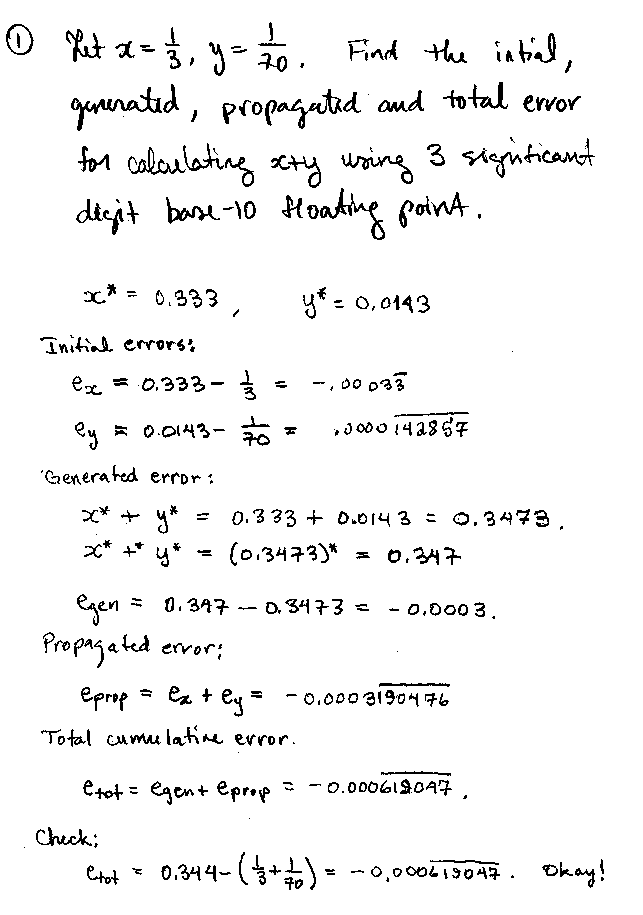 ① Let x = 1/3, y = 1/70. Find the intial,
generated, propagated and total error
for calculating x+y using 3 significant
digit base-10 floating point.
x* = 0.333, y* = 0.0143
Initial errors:
eₓ = 0.333 - 1/3 = -.00033̅
e_y = 0.0143 - 1/70 = .0000 1̅4̅2̅8̅5̅7̅
Generated error:
x* + y* = 0.333 + 0.0143 = 0.3473.
x* +* y* = (0.3473)* = 0.347
e_gen = 0.347 - 0.3473 = -0.0003.
Propagated error:
e_prop = eₓ + e_y = -0.0003̅1̅9̅0̅4̅7̅6̅
Total cumulative error.
e_tot = e_gen + e_prop = -0.0006̅1̅9̅0̅4̅7̅.
Check:
e_tot = 0.347 - (1/3 + 1/70) = -0,0006̅1̅9̅0̅4̅7̅. Okay!